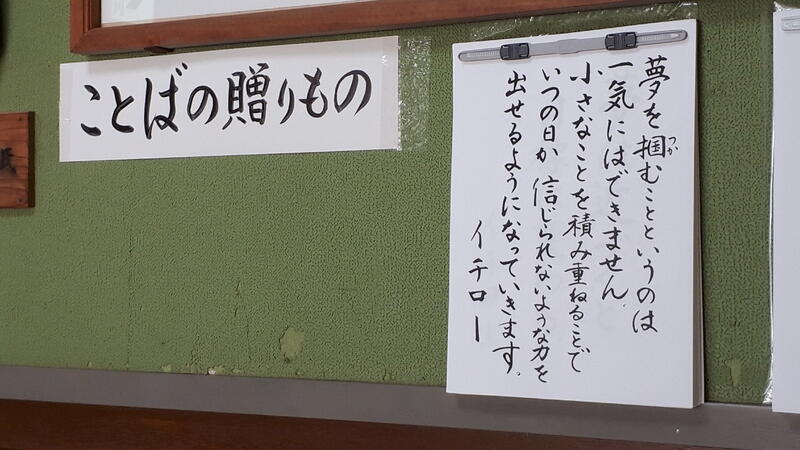 ことばの贈りもの
夢を掴むことというのは
つか
一気にはできません。
小さなことを積み重ねることで
いつの日か信じられないような力を
出せるようになっていきます。
イチロー